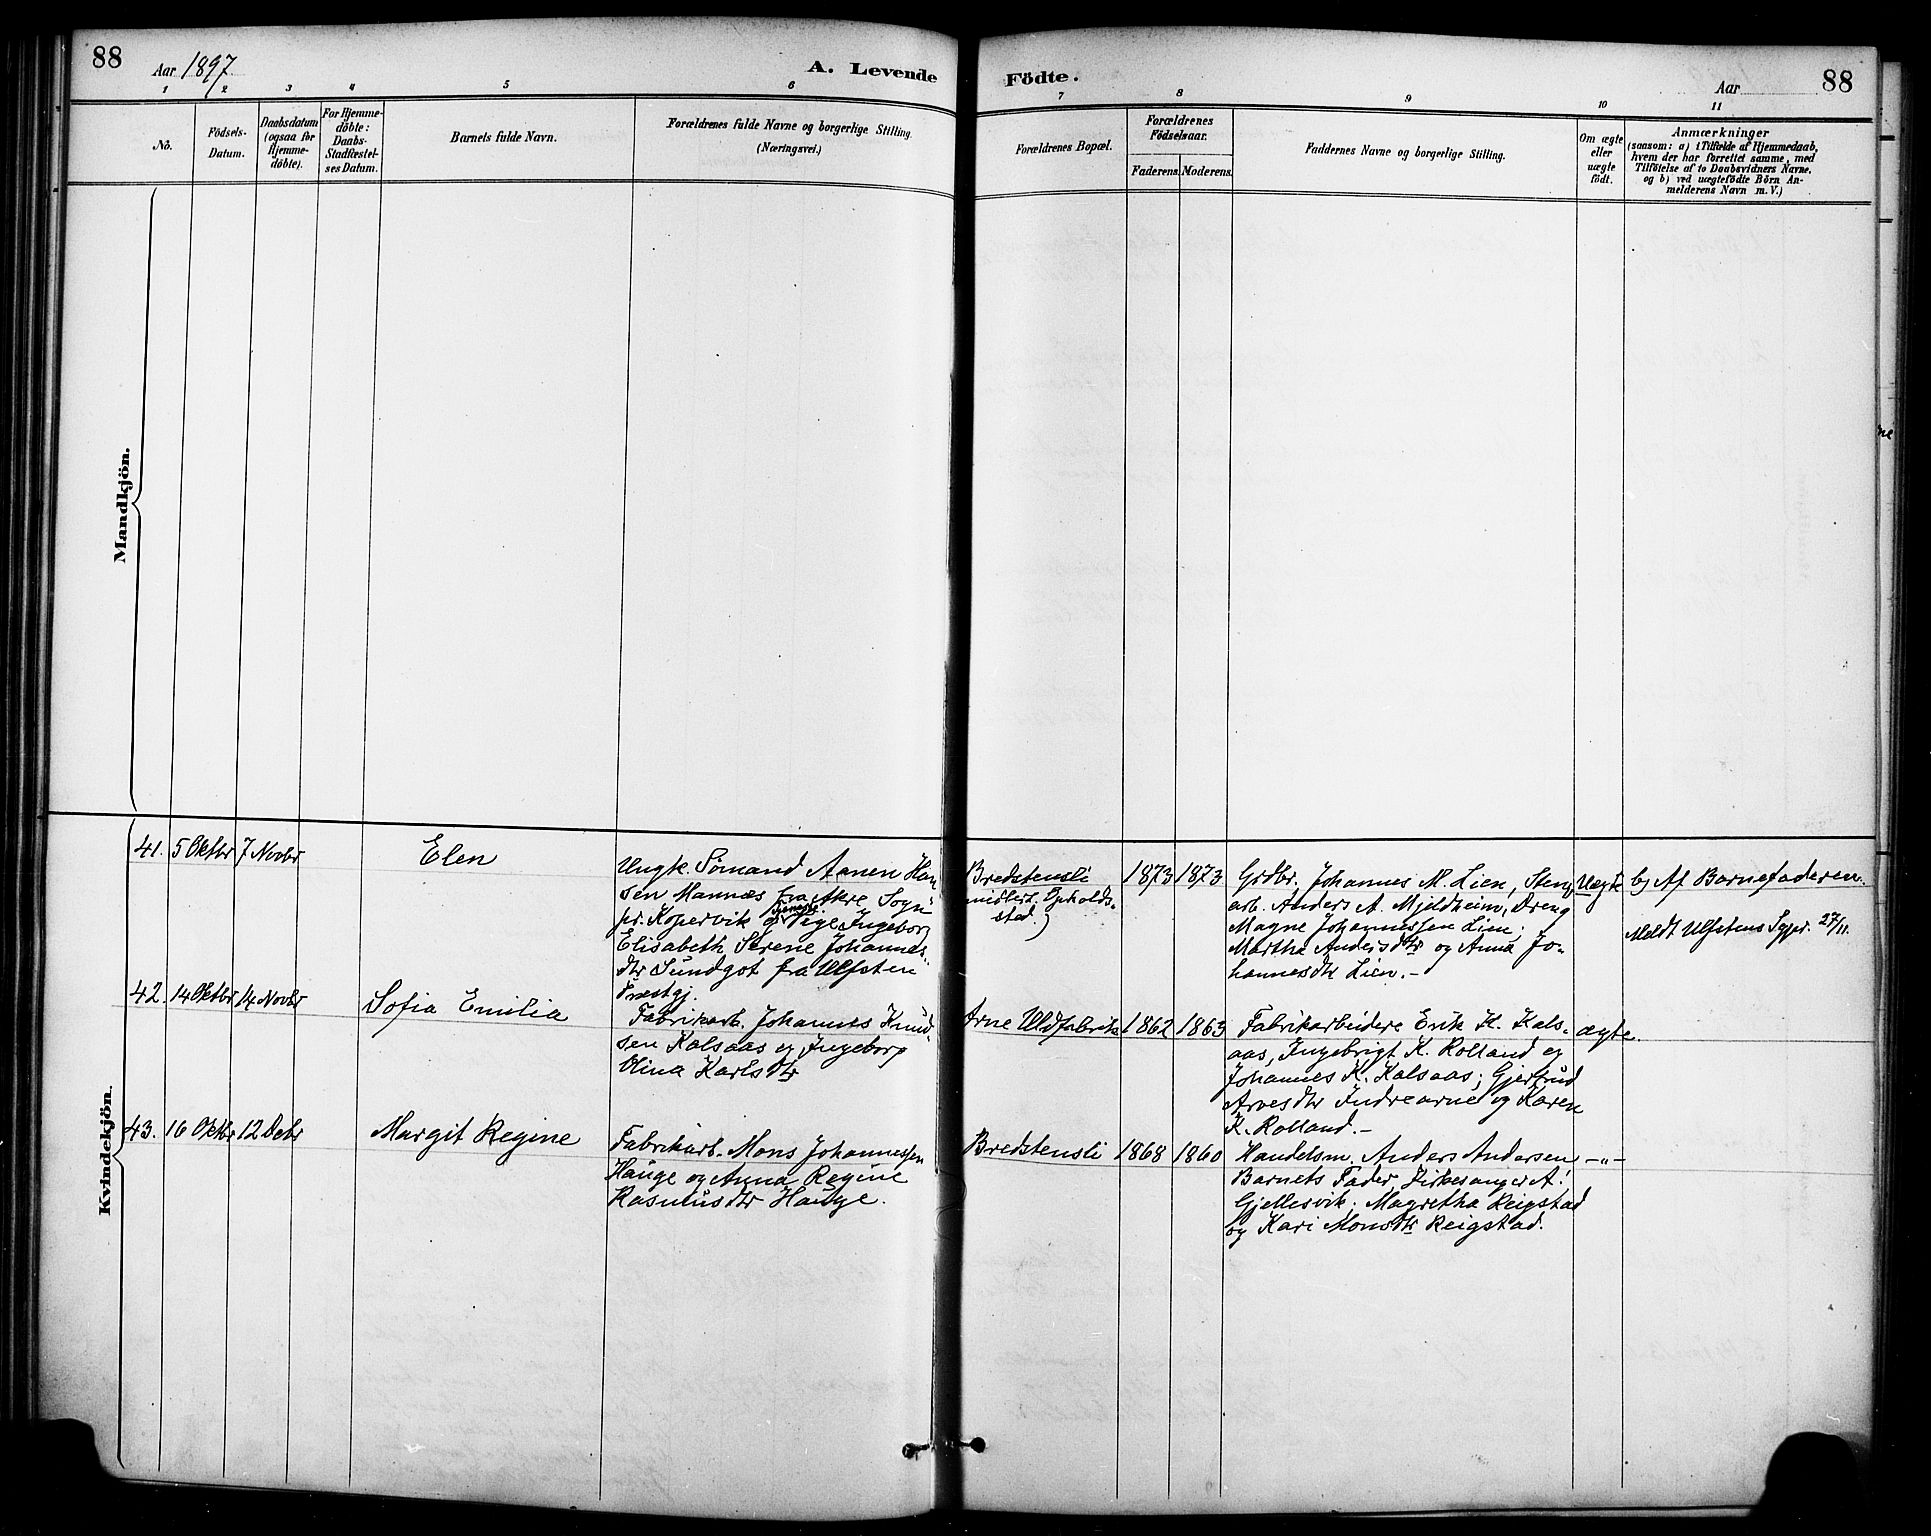 88
Aar 1897.
A. Levende Födte.
Aar
88
1 2 3 4 5 6 7 8 9 10 11
No.
Födsels-
Datum.
Daabsdatum
(ogsaa for
Hjemme-
döbte).
For Hjemme-
döbte:
Daabs-
Stadfæstel-
ses Datum.
Barnets fulde Navn.
Forældrenes fulde Navne og borgerlige Stilling.
(Næringsvei.)
Forældrenes Bopæl.
Forældrenes
Födselsaar.
Faderens. Moderens.
Faddernes Navne og borgerlige Stilling.
Om ægte
eller
uægte
födt.
Anmærkninger
(saasom: a) i Tilfælde af Hjemmedaab,
hvem der har forrettet samme, med
Tilföielse af to Daabsvidners Navne,
og b) ved uægtefödte Börn An-
melderens Navn m. V.)
Mandkjön.
Kvindekjön.
41. 5 Oktbr 7 Novbr Elen
Ungk. Sømand Aanen Han-
sen Mannæs fra Akre Sogn
pr. Kopervik og Tjeneste. Pige Ingeborg
Elisabeth Serene Johannes-
dtr Sundgot fra Ulfsten
Præstgj.
Bredstensli
midlert. Opholds-
stad.)
1873 1873
Grdbr. Johannes M. Lien, Sten-
arb. Anders A. Mjeldheim, Dreng
Magne Johannessen Lien;
Martha Andersdtr og Anna Jo-
hannesdtr Lien.-
Uægte
b) Af Barnefaderen.
Meldt Ulfstens Sgpr. 27/11.
42. 14 Oktbr 14 Novbr Sofia Emilia
Fabrikarb. Johannes Knud-
sen Kalsaas og Ingeborg
Olina Karlsdtr
Arne Uldfabrik 1862 1863
Fabrikarbeidere Erik K. Kals-
aas, Ingebrigt K. Rolland og
Johannes K. Kalsaas; Gjertrud
Arnesdtr Indrearne og Karen
K. Rolland.-
ægte.
43. 16 Oktbr 12 Debr Margit Regine
Fabrikarb. Mons Johannessen
Hauge og Anna Regine
Rasmusdtr Hauge.
Bredstensli 1868 1860
Handelsm. Anders Andersen
Barnets Fader, Kirkesanger A.
Gjellesvik; Magretha Reigstad
og Kari Monsdtr Reigstad.
-"-